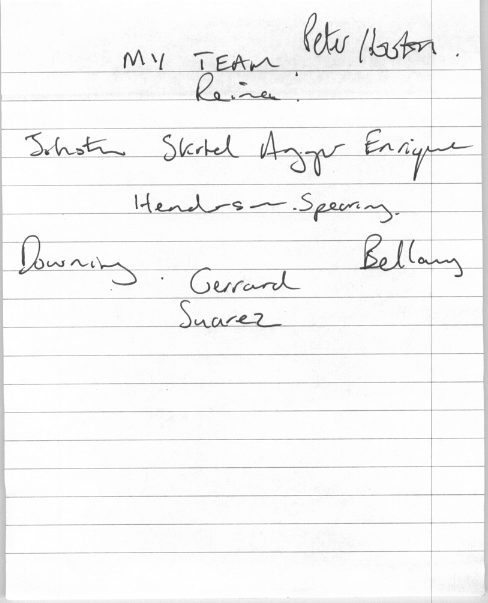 Peter Hooton.
MY TEAM.
Reina.
Johnson Skrtel Agger Enrique
Henderson. Spearing.
Downing. Bellamy
Gerrard
Suarez